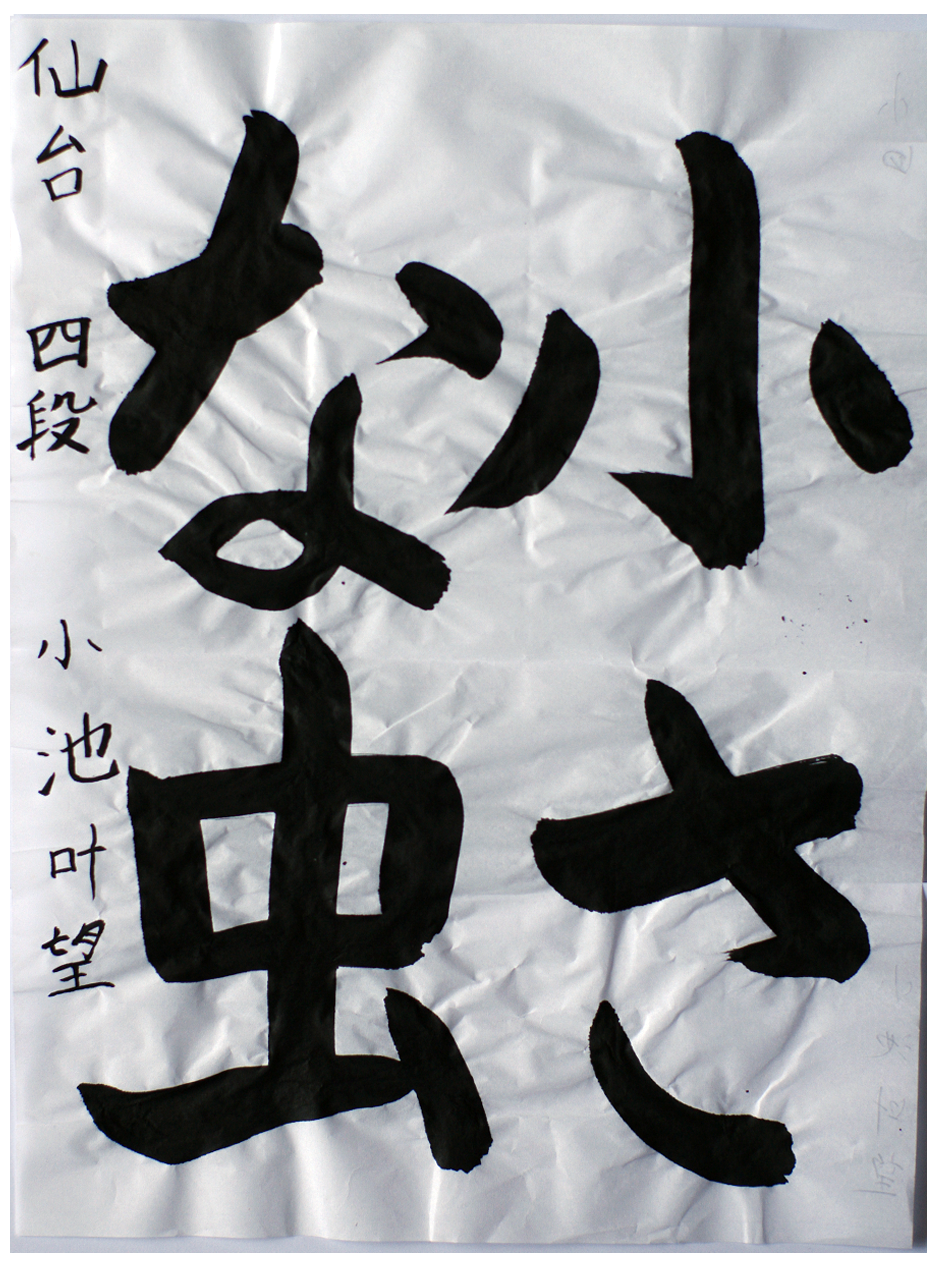 小さ
な虫
仙台 四段 小池叶望